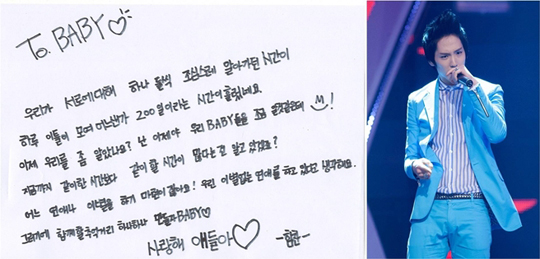 To. BABY♡
우리가 서로에 대해 하나 둘씩 조심스레 알아가던 시간이
하루 이틀이 모여 어느샌가 200일이라는 시간이 흘렀네요.
이제 우리를 좀 알았나요? 난 이제야 우리 BABY들을 조금 알것같은데 !
지금까지 같이한 시간보다 같이 할 시간이 많다는 건 알고 있겠죠?
어느 연애나 이별을 하기 마련이잖아요! 우린 이별없는 연애를 하고 있다고 생각해요.
함께할 추억거리 BABY♡
사랑해 얘들아♡ -힘찬-